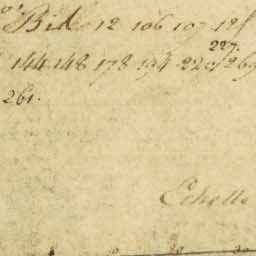 Bid 12 106 107 124
227.
144 148 178 194 220 269
261.
Echelle